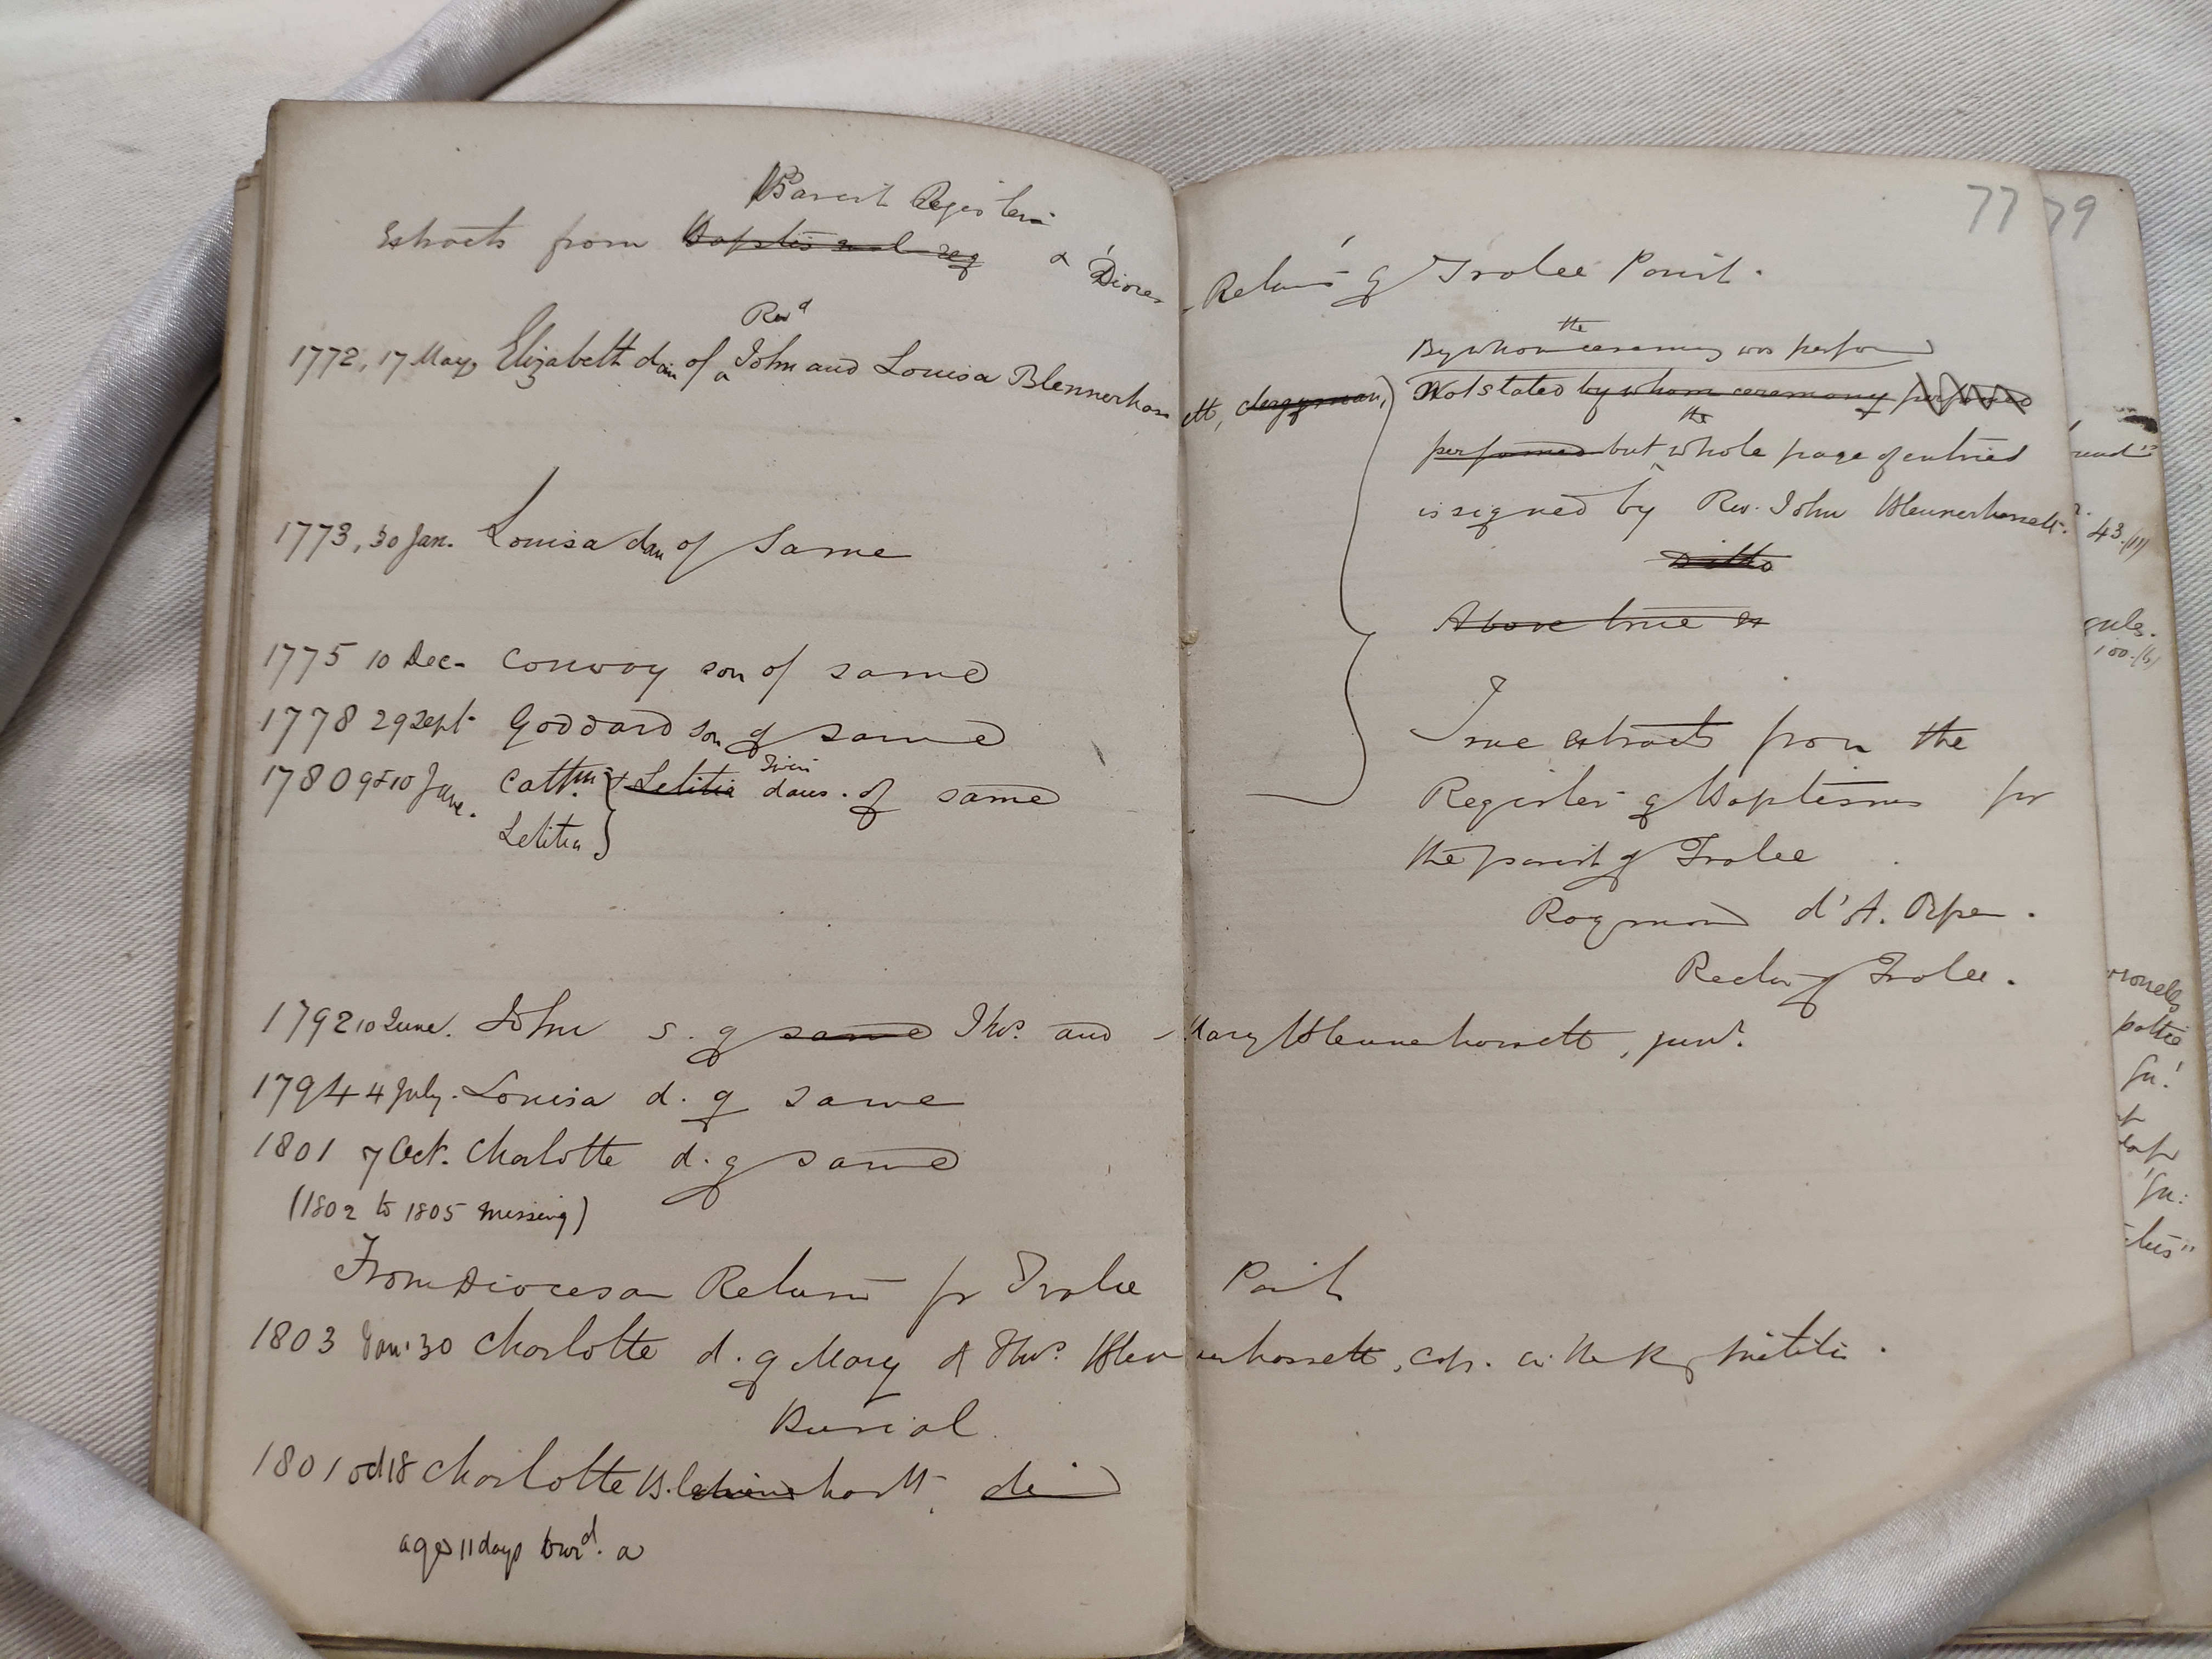 Parish Registers
Extracts from Baptismal reg & Dioces- Returns of Tralee Parish.
Revd
1772, 17 May, Elizabeth dau of John and Louisa Blennerhassett, clergyman,
1773, 30 Jan. Louisa dau of Same
1775 10 Dec- Conway son of same
1778 29 Sept- Goddard son of same
Twin
1780 9 & 10 June. Cathne & Letitia daus. of same
Letitia
1792 10 June. John s. of same Thos. and Mary Blennerhassett, junr.
1794 4 July. Louisa d. of same
1801 7 Oct. Charlotte d. of same
(1802 to 1805 missing)
From Diocesan Returns for Tralee Parish
1803 Jan. 30 Charlotte d. of Mary & Thos. Blennerhassett, Cap. in the Militia.
Burial
1801 Oct 18 Charlotte
aged 11 days burd. a
77
79
the
By whom ceremony was perfor
Not stated by whom ceremony performed
the
performed but whole page of entries
is signed by Rev. John Blennerhassett.
Ditto
Above true
True extracts from the
Register of Baptisms for
the parish of Tralee
Raymond d'A. Orpen.
Rector of Tralee.
43.
100.